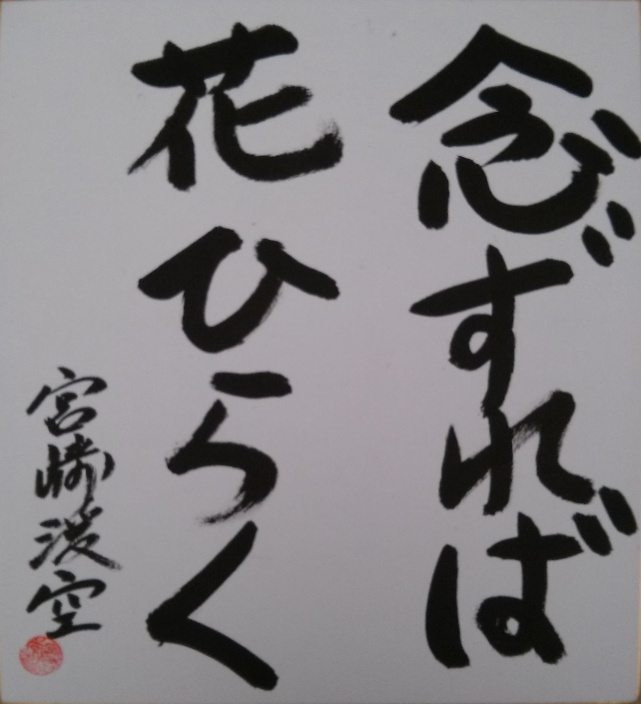 念ずれば
花ひらく
宮崎